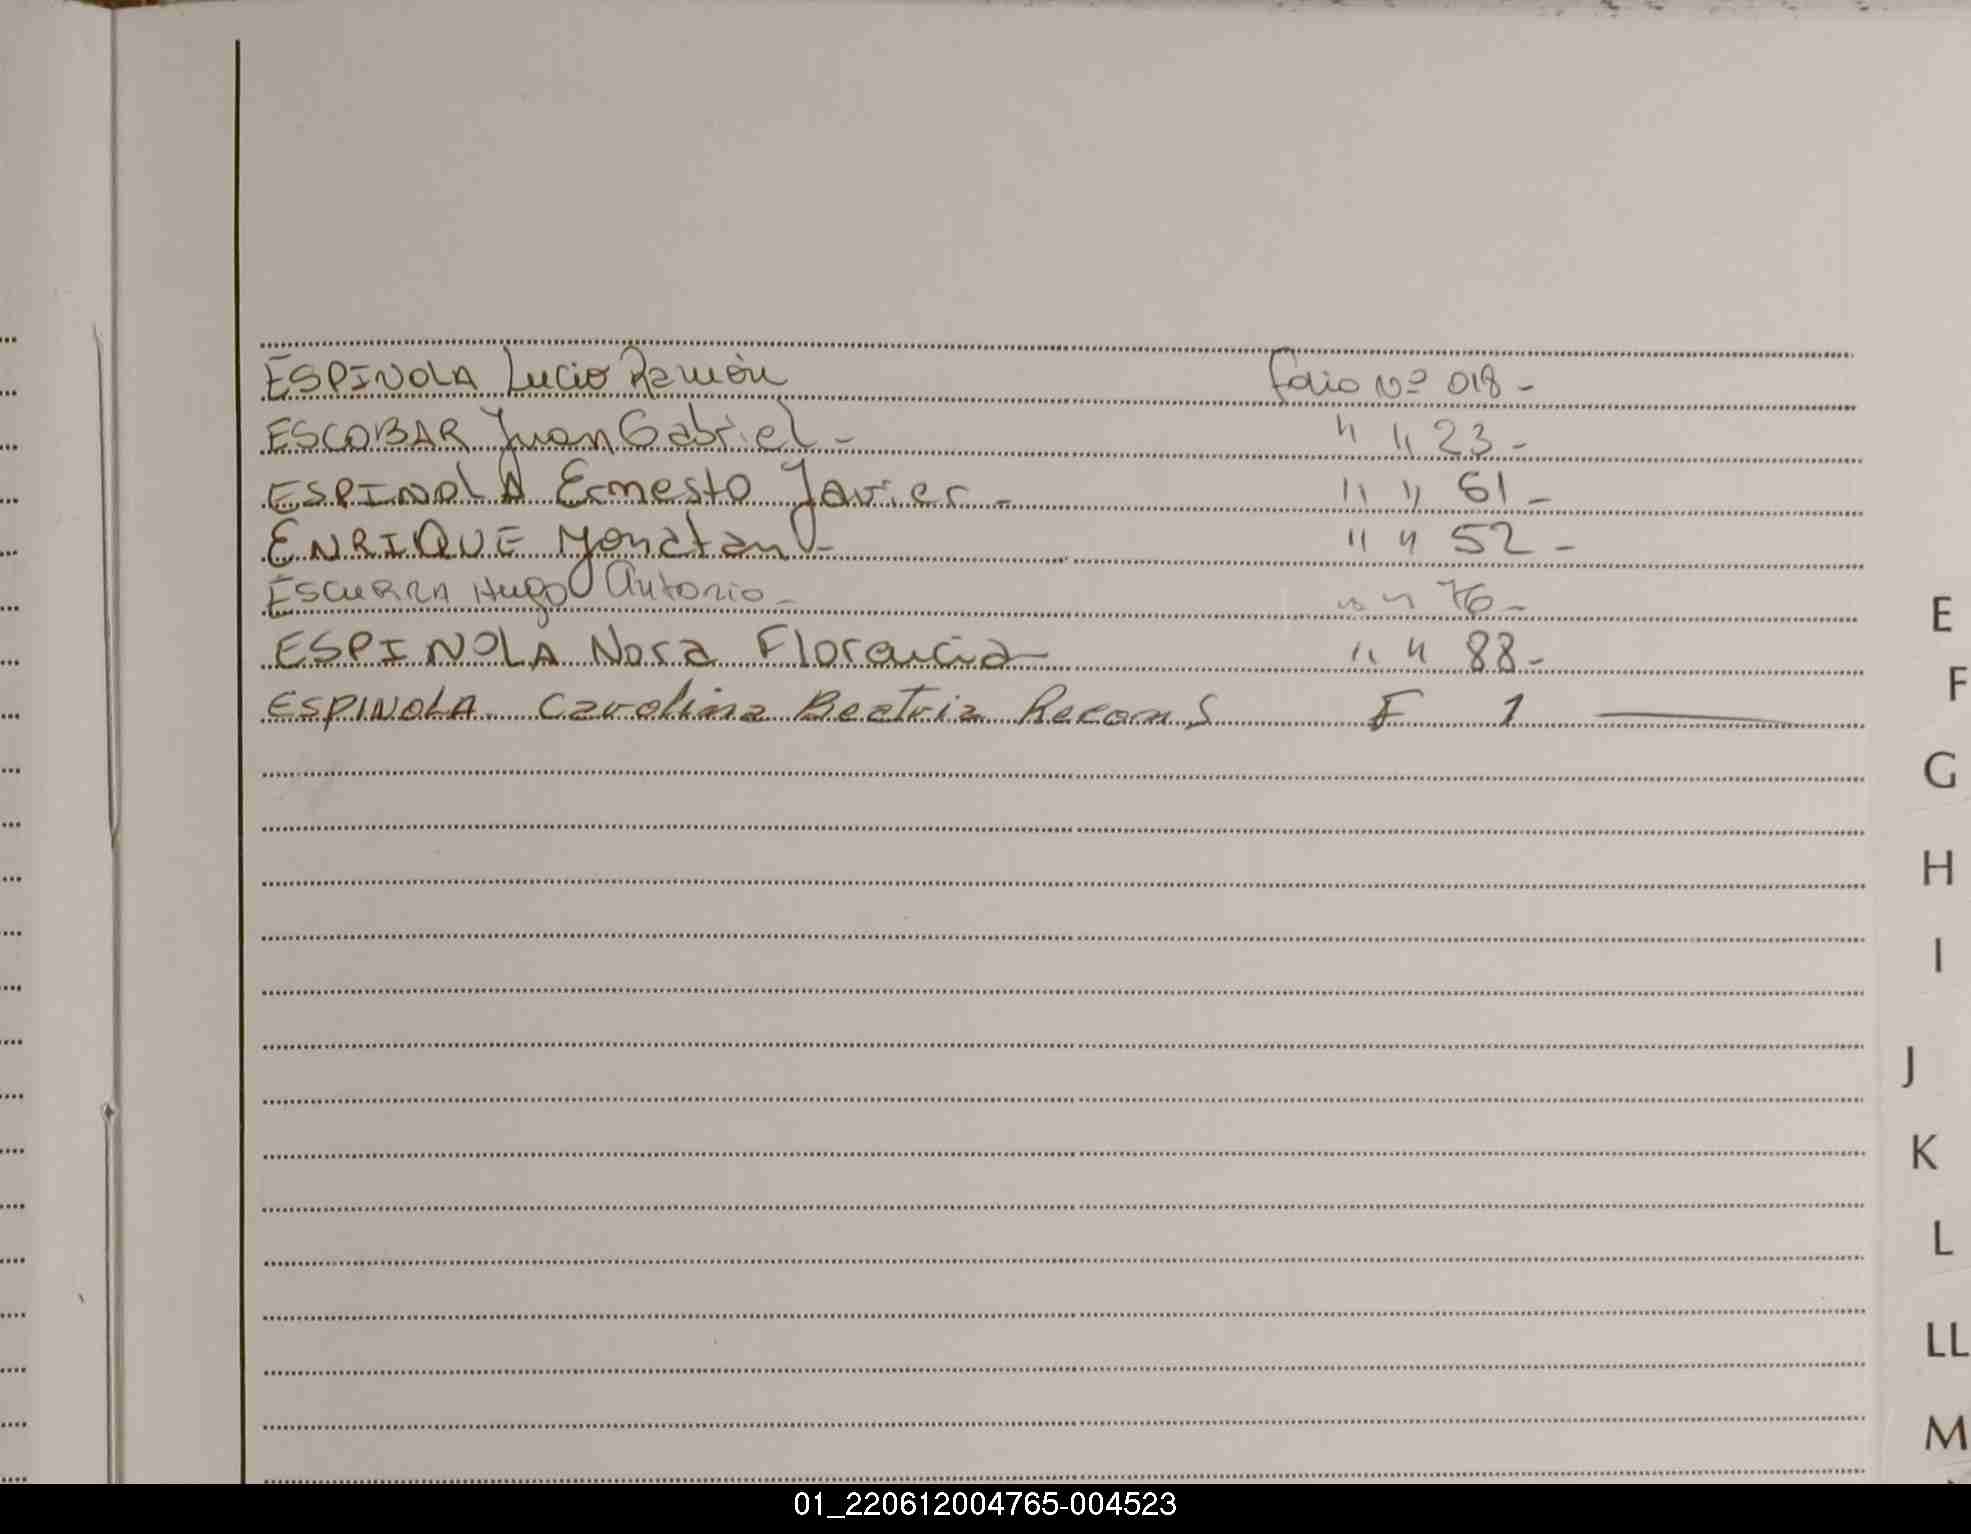 ESPINOLA Lucio Ramón folio Nº 018 -
ESCOBAR Juan Gabriel - " " 23 -
ESPINOLA Ernesto Javier - " " 61 -
ENRIQUE Yonatan - " " 52 -
ESCURRA Hugo Antonio - " " 76 -
ESPINOLA Nora Florencia - " " 88 -
ESPINOLA Carolina Beatriz F 1 —
E
F
G
H
I
J
K
L
LL
M
01_220612004765-004523